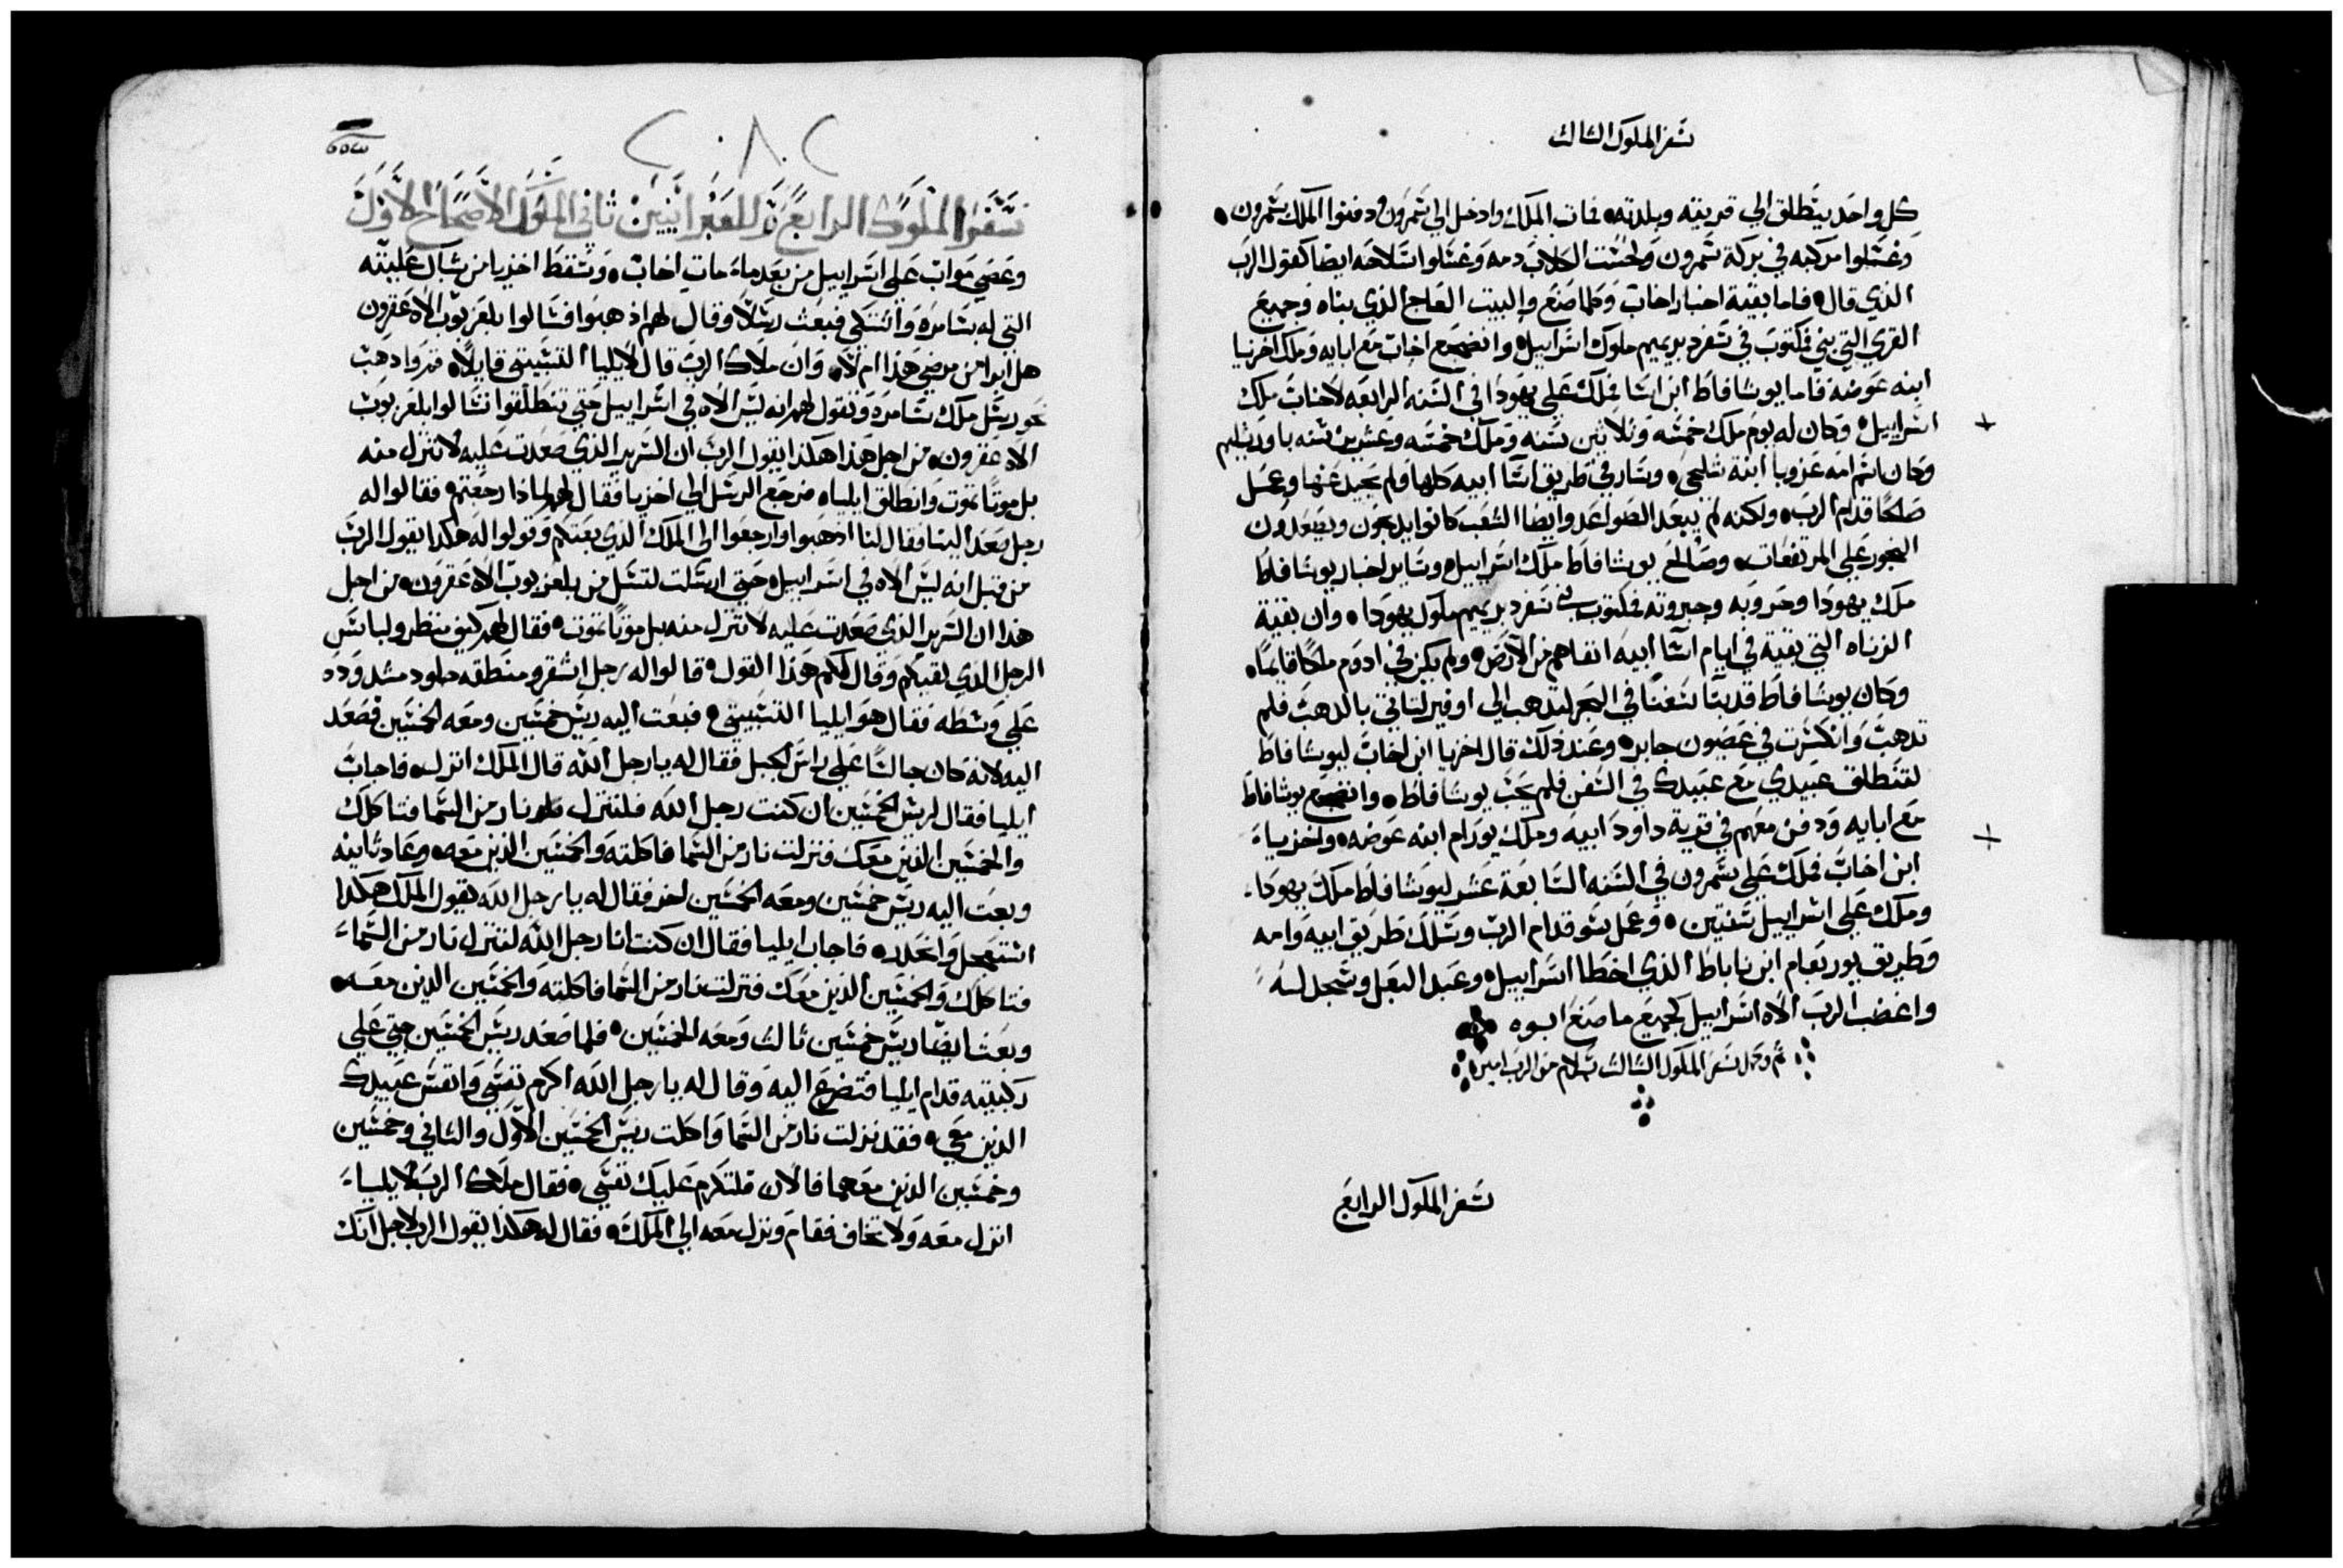 سفر الملوك الثالث
كل واحد ينطلق الي قريته وبلدته، فمات الملك وادخل الي شمرون ودفنوا الملك بشمرون،
وغسلوا مركبه في بركة شمرون ولحست الكلاب دمه وغسلوا اسلاحه ايضا كقول الرب
الذي قال، فاما بقية اخبار اخاب وكلما صنع والبيت العاج الذي بناه وجميع
القري التي بني فمكتوب في سفر دبريميم ملوك اسراييل، وانضجع اخاب مع ابايه وملك اخزيا
ابنه عوضه فاما يوشافاط ابن اسا فملك علي يهودا في السنه الرابعه لاخاب ملك
اسراييل، وكان له يوم ملك خمسه وثلاثين سنه وملك خمسه وعشرين سنه باورشليم
وكان اسم امه عزوبا ابنة شليحي، وسار في طريق اسا ابيه كلها ولم يحيد عنها وعمل
صلحًا قدام الرب، ولكنه لم يبعد الصواعد وايضا الشعب كانوا يدبحون ويصعدون
البخور علي المرتفعات، وصالح يوشافاط ملك اسراييل، وساير اخبار يوشافاط
ملك يهودا وحروبه وجبروته فمكتوب في سفر دبريميم ملوك يهودا، وان بقية
الزناه التي بقية في ايام اسا ابيه انفاهم من الارض، ولم يكن في ادوم ملكًا قايمًا،
وكان يوشافاط قد بنا سفنًا في البحر لتدهب الي اوفير لتاتي بالدهب فلم
تدهب وانكسرت في عصيون جابر، وعند ذلك قال اخزيا ابن اخاب ليوشافاط
لتنطلق عبيدي مع عبيدك في السفن فلم يحب يوشافاط، وانضجع يوشافاط
مع ابايه ودفن معهم في قرية داود ابيه وملك يورام ابنه عوضه، واخزياء
ابن اخاب فملك علي شمرون في السنه السابعة عشر ليوشافاط ملك يهودا،
وملك علي اسراييل سنتين، وعمل بسو قدام الرب وسلك طريق ابيه وامه
وطريق يوربعام ابن ناباط الذي اخطا اسراييل، وعبد البعل وسجد له
واغضب الرب الاه اسراييل كجميع ما صنع ابوه
تم وكمل سفر الملوك الثالث بسلام من الرب امين
سفر الملوك الرابع
٢٠٨٢
سفر الملوك الرابع للعبرانيين ثاني الملوك الاصحاح الاول
وعصي مواب علي اسراييل من بعد ماء مات اخاب، وسقط اخزيا من شباك عليته
التي له بشامره واشتكي فبعث رسلًا وقال لهم اذهبوا فسالوا بلعزبوب الاه عقرون
هل ابرا من مرضي هذا ام لا، وان ملاك الرب قال لايليا التشبيتي قايلًا، قم واذهب
نحو رسل ملك شامره وتقول لهم انه ليس الاه في اسراييل حتي تنطلقوا تسالوا بلعزبوب
الاه عقرون، من اجل هذا هكذا يقول الرب ان السرير الذي صعدت عليه لا تنزل منه
بل موتًا تموت وانطلق ايليا، فرجع الرسل الي اخزيا فقال لهم لماذا رجعتم، فقالوا له
رجل صعد الينا فقال لنا ادهبوا وارجعوا الي الملك الذي بعتكم وقولوا له هكدا يقول الرب
من قبل انه ليس الاه في اسراييل حتي ارسلت لتسل من بلعزبوب الاه عقرون، من اجل
هذا ان السرير الذي صعدت عليه لا تنزل منه بل موتًا تموت، فقال لهم كيف منظر ولباس
الرجل الذي لقيكم وقال لكم هذا القول، قالوا له رجل اشقر ومنطقه جلود مشدوده
علي وسطه فقال هو ايليا التشبيتي، فبعت اليه ريس خمسين ومعه الخمسين فصعد
اليه لانه كان جالسًا علي راس الجبل فقال له يا رجل الله قال الملك انزل، فاجاب
ايليا فقال لريس الخمسين ان كنت رجل الله فلتنزل نار من السما فتاكلك
والخمسين الذين معك فنزلت نار من السما فاكلته والخمسين الذين معه، وعاد ثانيه
وبعت اليه ريس خمسين ومعه الخمسين اخر فقال له يا رجل الله يقول الملك هكدا
استعجل وانحدر، فاجاب ايليا فقال ان كنت انا رجل الله لتنزل نار من السماء
فتاكلك والخمسين الذين معك فنزلت نار من السما فاكلته والخمسين الذين معه،
وبعت ايضا ريس خمسين ثالث ومعه الخمسين، فلما صعد ريس الخمسين جتي علي
ركبتيه قدام ايليا فتضرع اليه وقال له يا رجل الله اكرم نفسي وانفس عبيدك
الدين معي، فقد نزلت نار من السما واكلت ريس الخمسين الاول والثاني وخمسين
وخمسين الدين معهما فالان فلتكرم عليك نفسي، فقال ملاك الرب لايلياء
انزل معه ولا تخاف فقام ونزل معه الي الملك، فقال له هكذا يقول الرب لاجل انك